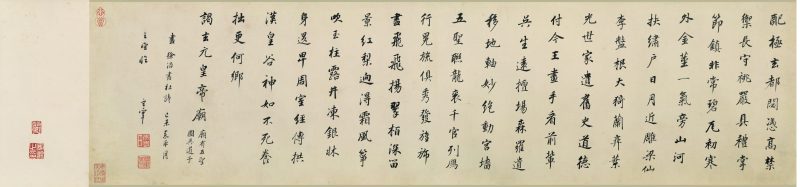 配極玄都閟憑高禁
禦長守祧嚴具禮掌
節鎮非常碧瓦初寒
外金莖一氣旁山河
扶繡戶日月近雕梁仙
李蟠根大猗蘭奕葉
光世家遺舊史道德
付今王畫手看前輩
吳生遠擅場森羅
移地軸妙絕動宮牆
五聖聯龍袞千官列雁
行冕旒俱秀發旌旆
盡飛揚翠柏深留
景紅梨迥得霜風箏
吹玉柱露井凍銀牀
身退卑周室經傳拱
漢皇谷神如不死養
拙更何鄉
謁玄元皇帝廟
廟有五聖
圖吳道子
書徐浩書杜詩
己未嘉平月